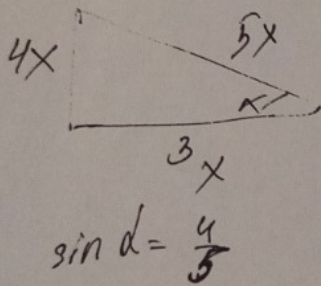 4x
5x
α
3x
sin α = 4/5